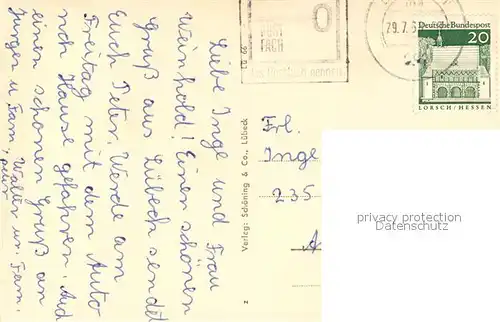 Liebe Inge und Frau
Weinhold! Einen schönen
Gruß aus Lübeck sendet
Euch Peter. Werde am
Freitag mit dem Auto
nach Hause gefahren. Auch
einen schönen Gruß an
Jürgen u. Fam., Walter un. Fam.
Peter
Verlag: Schöning & Co., Lübeck
z
POST
FACH
29.7.6
Deutsche Bundespost
20
LORSCH/HESSEN
Frl.
Inge
235
privacy protection
Datenschutz